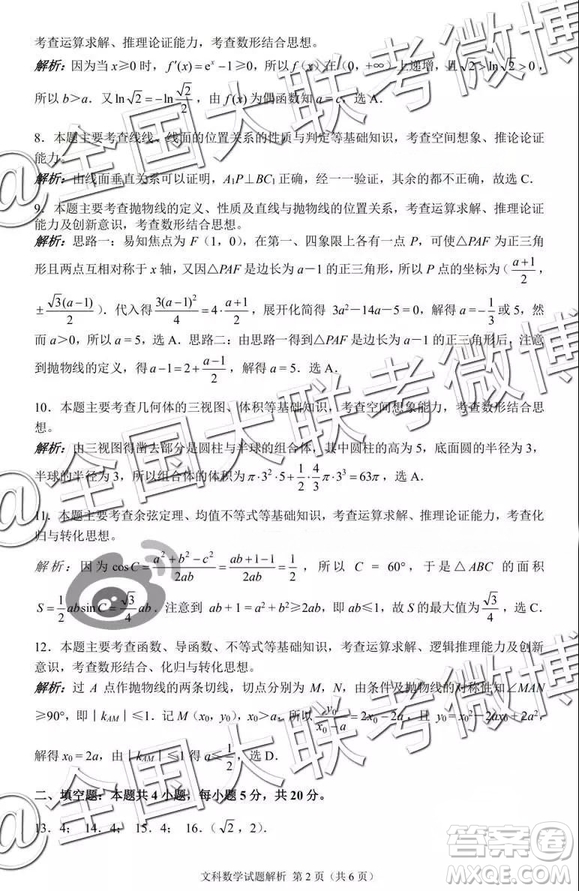 考查运算求解、推理论证能力，考查数形结合思想。
解析：因为当 x≥0 时，f′(x)＝eˣ－1≥0，所以 f (x) 在（0，+∞）上递增，且√2＞ln√2＞0，
所以 b＞a．又 ln √2/2＝－ln√2，由 f (x) 为偶函数知 a＝c，选 A．
8．本题主要考查线线、线面的位置关系的性质与判定等基础知识，考查空间想象、推论论证
能力。
解析：由线面垂直关系可以证明，A₁P⊥BC₁ 正确，经一一验证，其余的都不正确，故选 C．
9．本题主要考查抛物线的定义、性质及直线与抛物线的位置关系，考查运算求解、推理论证
能力及创新意识，考查数形结合思想。
解析：思路一：易知焦点为 F（1，0），在第一、四象限上各有一点 P，可使△PAF 为正三角
形且两点互相对称于 x 轴，又因△PAF 是边长为 a－1 的正三角形，所以 P 点的坐标为（(a+1)/2，
±√3(a－1)/2）．代入得 3(a－1)²/4＝4·(a+1)/2，展开化简得 3a²－14a－5＝0，解得 a＝－1/3或 5，然
而 a＞0，所以 a＝5，选 A．思路二：由由图得到△PAF 是边长为 a－1 的正三角形后，注意
到抛物线的定义，得 a－1＝2+(a－1)/2，解得 a＝5．选 A．
10．本题主要考查几何体的三视图、体积等基础知识，考查空间想象能力，考查数形结合思
想。
解析：由三视图得凿去部分是圆柱与半球的组合体，其中圆柱的高为 5，底面圆的半径为 3，
半球的半径为 3，所以组合体的体积为 π·3²·5+1/2·4/3π·3³＝63π，选 A．
11．本题主要考查余弦定理、均值不等式等基础知识，考查运算求解、推理论证能力，考查化
归与转化思想。
解析：因为 cosC＝(a²+b²－c²)/2ab＝(ab+1－1)/2ab＝1/2，所以 C＝60°，于是△ABC 的面积
S＝1/2absinC＝√3/4ab．注意到 ab+1＝a²+b²≥2ab，即 ab≤1，故 S 的最大值为√3/4，选 C．
12．本题主要考查函数、导函数、不等式等基础知识，考查运算求解、逻辑推理能力及创新意
识，考查数形结合、化归与转化思想。
解析：过 A 点作抛物线的两条切线，切点分别为 M，N，由条件及抛物线的对称性知∠MAN
≥90°，即｜kAM｜≤1．记 M（x₀，y₀），x₀＞a，所以 y₀/(x₀－a)＝2x₀－2a，且 y₀＝x₀²－2ax₀+2a²，
解得 x₀＝2a，由｜kAM｜≤1 得 a≤1/2，选 D．
二、填空题：本题共 4 小题，每小题 5 分，共 20 分。
13．4； 14．4； 15．4； 16．（√2，2）．
文科数学试题解析 第 2 页（共 6 页）
@全国大联考微博
@全国大联考微博
@全国大联考微博
答案圈
MXQE.COM